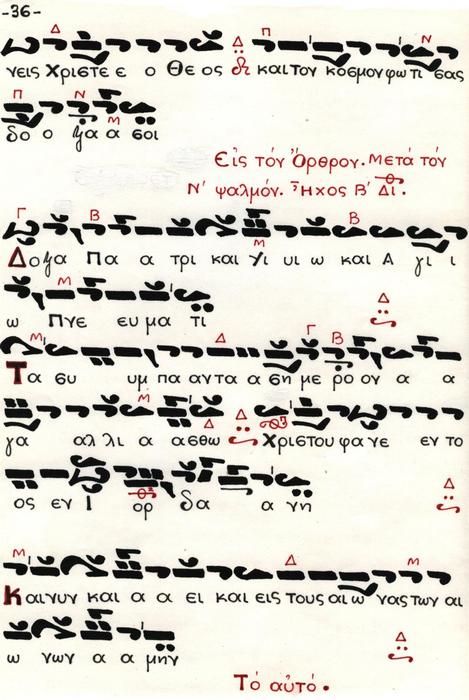 -36-
γεις Χριστε ε ο Θε ος και τον κοσμον φω τι σας
δο ο ξα α σοι
Εἰς τὸν Ὄρθρον. Μετά τόν
Ν' ψαλμόν. Ἦχος Β' Δι.
Δοξα Πα α τρι και Υι υι ω και Α γι ι
ω Πνε ευ μα τι
Τα συ υμ πα αντα α ση με ρο ον α α
γα αλ λι α ασθω Χριστου φα νε εν το
ος εν Ι ορ δα α νη
Και νυν και α α ει και εις τους αι ω νας των αι
ω νων α α μην
Τό αὐτό.